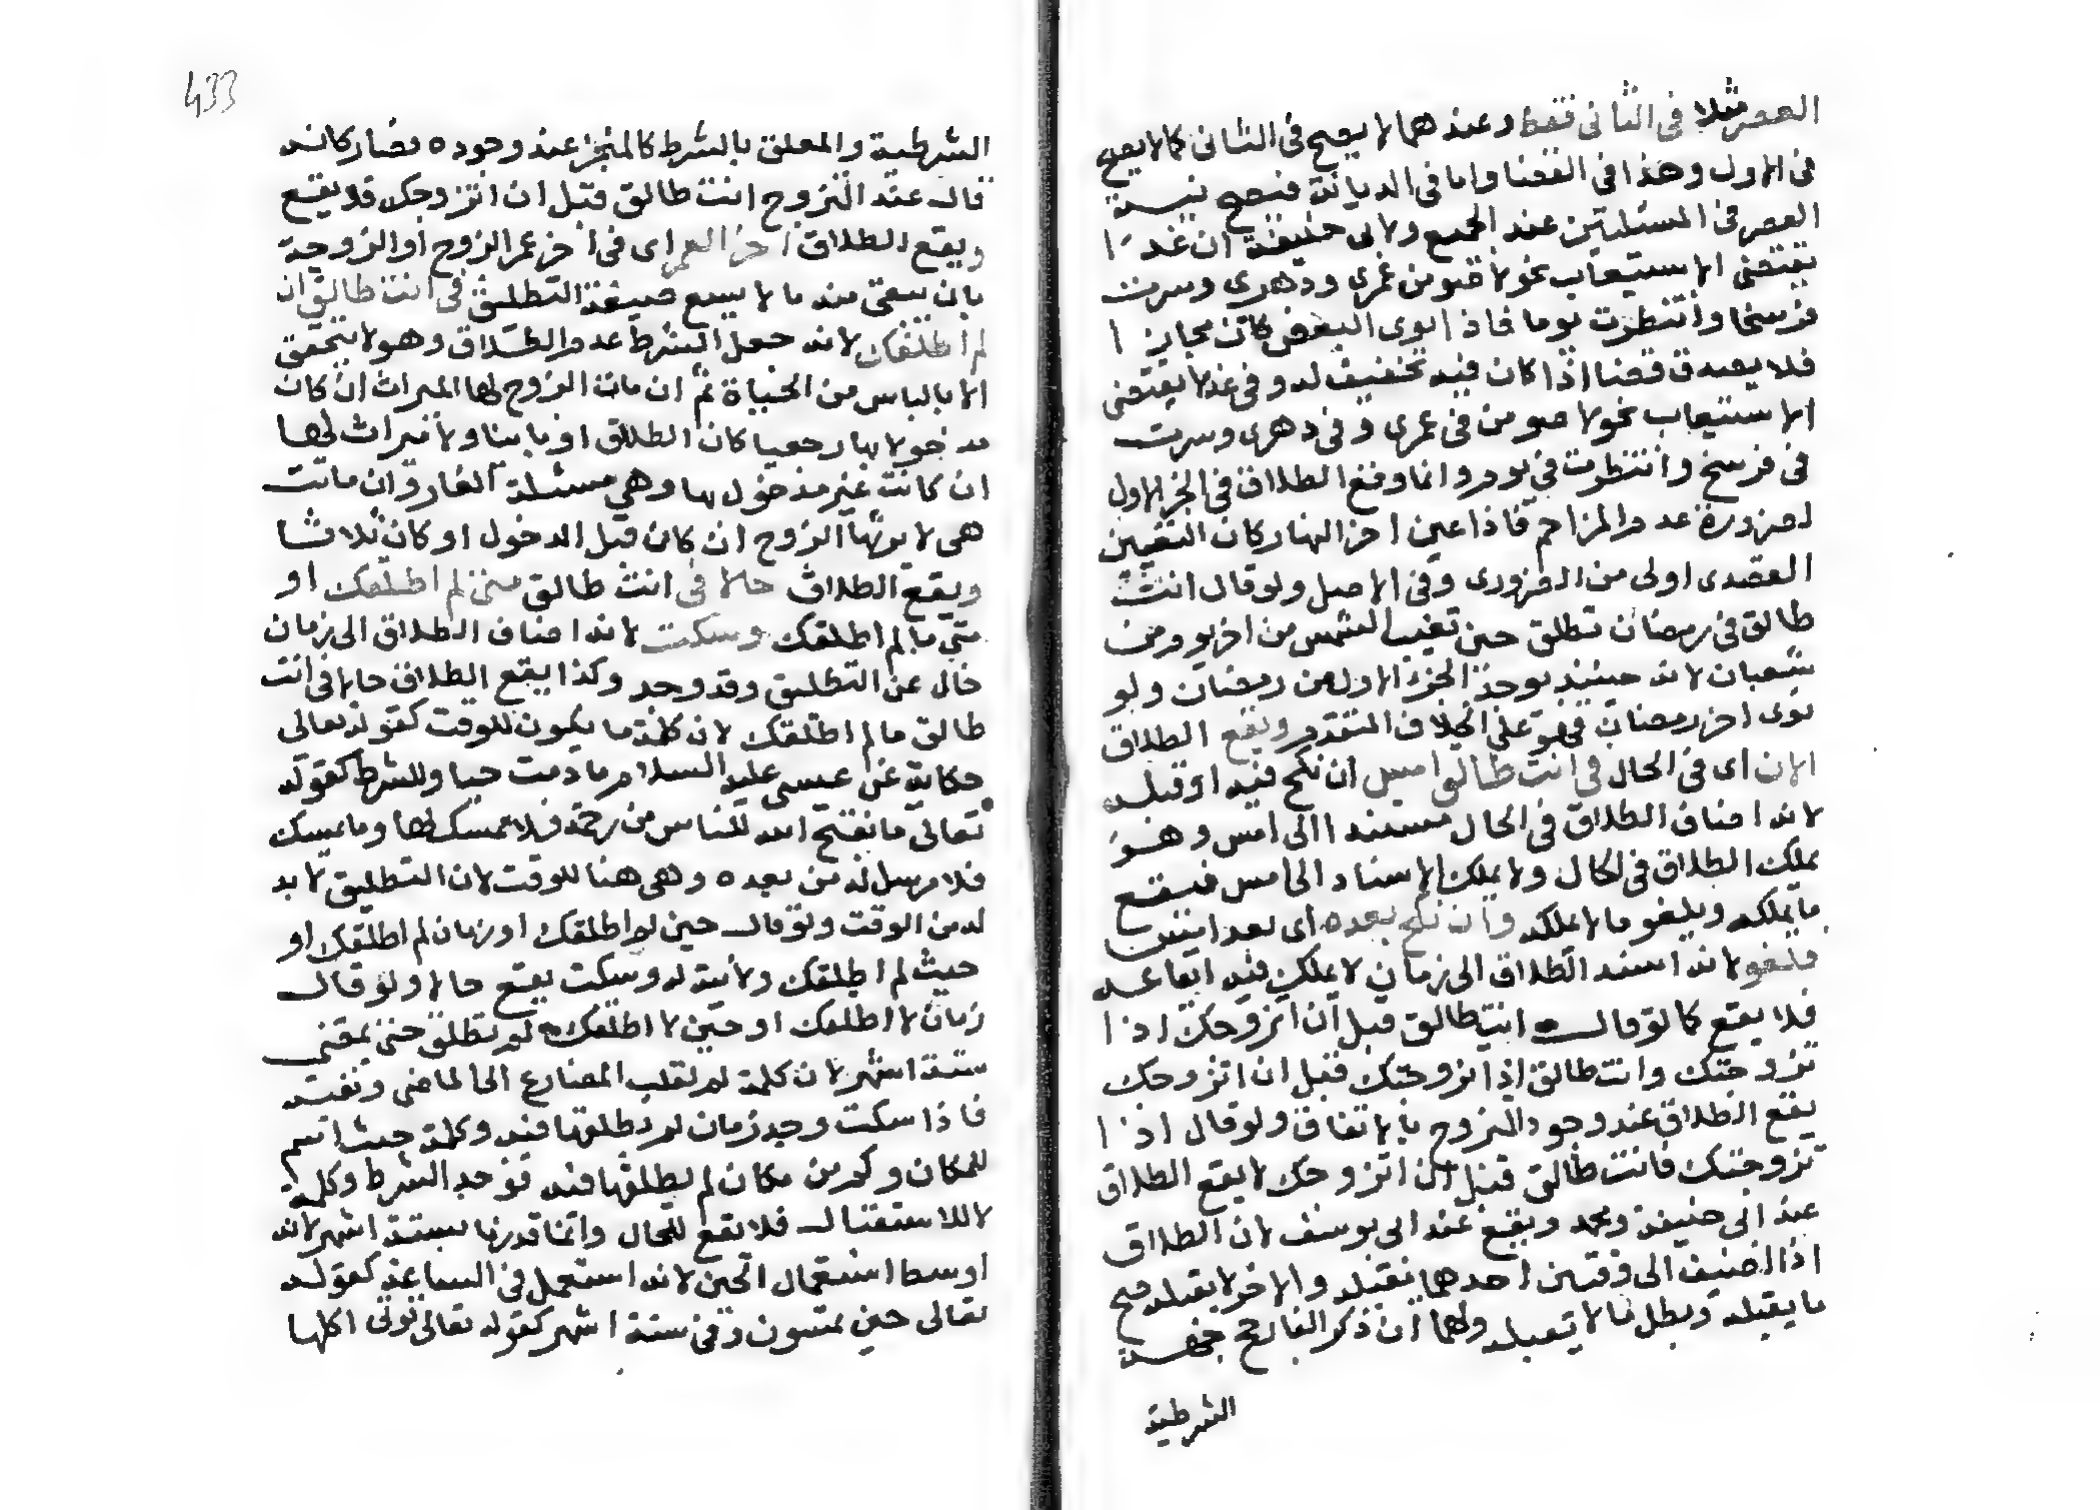 العصر مثلا فى الثانى فقط وعندهما لا يصح فى الثانى كما لا يصح
فى الاول وهذا فى القضا واما فى الديانة فتصح نية
العصر فى المسئلتين عند الجميع ولابى حنيفة ان غدا
يقتضى الاستيعاب نحو لاصومن عمرى ودهرى وسرت
فرسخا وانتظرت يوما فاذا نوى البعض كان مجازا
فلا يصدق قضا اذا كان فيه تخفيف له وفى غد لا يقتضى
الاستيعاب نحو لاصومن فى عمرى وفى دهرى وسرت
فى فرسخ وانتظرت فى يوم وانما وقع الطلاق فى الجزء الاول
لضرورة عدم المزاحم فاذا عين اخر النهار كان التعيين
القصدى اولى من الضرورى وفى الاصل ولو قال انت
طالق فى رمضان تطلق حين تغيب الشمس من اخر يوم من
شعبان لانه حينئذ يوجد الجزء الاول من رمضان ولو
نوى اخر رمضان فهو على الخلاف المتقدم ويقع الطلاق
الان اى فى الحال فى انت طالق امس ان نكح فيه او قبله
لانه اضاف الطلاق فى الحال مستندا الى امس وهو
يملك الطلاق فى الحال ولا يملك الاسناد الى امس فيقع
ما يملكه ويلغو ما لا يملكه وان نكح بعده اى بعد امس
فلغو لانه اسند الطلاق الى زمان لا يملك فيه ايقاعه
فلا يقع كما لو قال انت طالق قبل ان اتزوجك اذا
تزوجتك وانت طالق اذا تزوجتك قبل ان اتزوجك
يقع الطلاق عند وجود التزوج بالاتفاق ولو قال اذا
تزوجتك فانت طالق قبل ان اتزوجك لا يقع الطلاق
عند ابى حنيفة ومحمد ويقع عند ابى يوسف لان الطلاق
اذا اضيف الى وقتين احدهما يقبله والاخر لا يقبله صح
ما يقبله وبطل ما لا يقبله ولهما ان ذكر الفا رجح جهة
الشرطية
433
الشرطية والمعلق بالشرط كالمنجز عند وجوده فصار كانه
قال عند التزوج انت طالق قبل ان اتزوجك فلا يقع
ويقع الطلاق اخر العمر اى فى اخر عمر الزوج او الزوجة
بان يبقى منه ما لا يسع صيغة التطليق فى انت طالق ان
لم اطلقك لانه جعل الشرط عدم الطلاق وهو لا يتحقق
الا بالياس من الحياة ثم ان مات الزوج لها الميراث ان كان
مدخولا بها رجعيا كان الطلاق او باينا ولا ميراث لها
ان كانت غير مدخول بها وهى مسئلة الفار وان ماتت
هى لا يرثها الزوج ان كان قبل الدخول او كان ثلاثا
ويقع الطلاق حالا فى انت طالق متى لم اطلقك او
متى ما لم اطلقك وسكت لانه اضاف الطلاق الى زمان
خال عن التطليق وقد وجد وكذا يقع الطلاق حالا فى انت
طالق ما لم اطلقك لان كلمة ما يكون للوقت كقوله تعالى
حكاية عن عيسى عليه السلام ما دمت حيا وللشرط كقوله
تعالى ما يفتح الله للناس من رحمة فلا ممسك لها وما يمسك
فلا مرسل له من بعده وهى هنا للوقت لان التطليق لا بد
له من الوقت ولو قال حين لم اطلقك او زمان لم اطلقك او
حيث لم اطلقك ولا نية له وسكت يقع حالا ولو قال
زمان لا اطلقك او حين لا اطلقك لم تطلق حتى يمضى
ستة اشهر لان كلمة لم تقلب المضارع الى الماضى ونفيه
فاذا سكت وجد زمان لم يطلقها فيه وكلمة حيث اسم
للمكان وكم من مكان لم يطلقها فيه فوجد الشرط وكلمة
لا للاستقبال فلا يقع للحال وانما قدرنا بستة اشهر لانه
اوسط استعمال الحين لانه استعمل فى الساعة كقوله
تعالى حين تمسون وفى ستة اشهر كقوله تعالى تؤتى اكلها